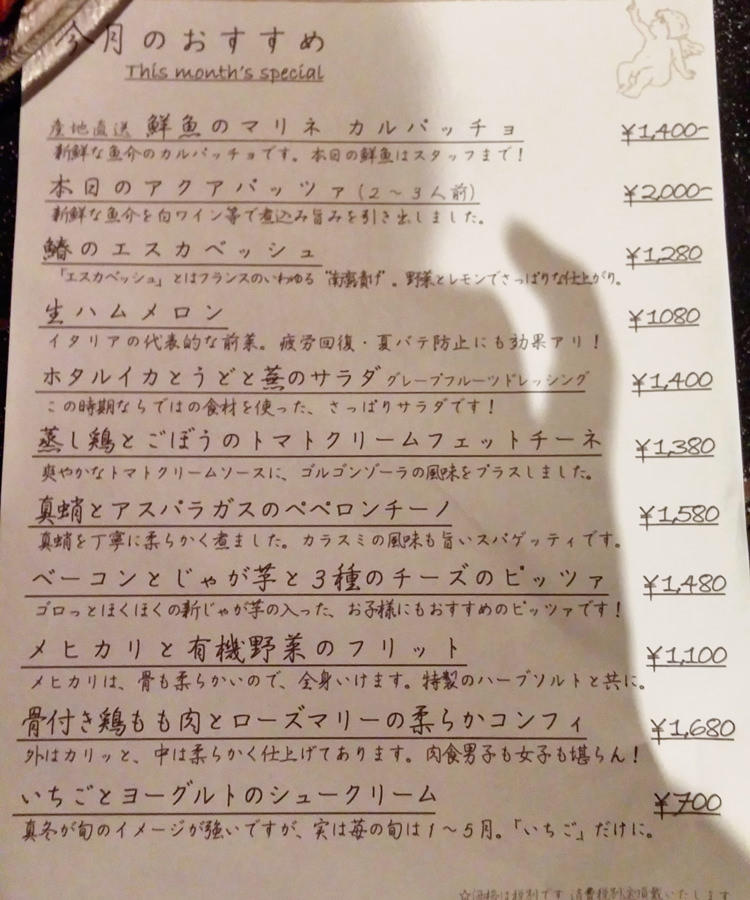 今月のおすすめ
This month's special
産地直送 鮮魚のマリネ カルパッチョ ¥1,400-
新鮮な魚介のカルパッチョです。本日の鮮魚はスタッフまで!
本日のアクアパッツァ(2~3人前) ¥2,000-
新鮮な魚介を白ワイン等で煮込み旨みを引き出しました。
鰆のエスカベッシュ ¥1,280
「エスカベッシュ」とはフランスのいわゆる"南蛮漬け"。野菜とレモンでさっぱりな仕上がり。
生ハムメロン ¥1080
イタリアの代表的な前菜。疲労回復・夏バテ防止にも効果アリ!
ホタルイカとうどと蕪のサラダ グレープフルーツドレッシング ¥1,400
この時期ならではの食材を使った、さっぱりサラダです!
蒸し鶏とごぼうのトマトクリームフェットチーネ ¥1,380
爽やかなトマトクリームソースに、ゴルゴンゾーラの風味をプラスしました。
真蛸とアスパラガスのペペロンチーノ ¥1,580
真蛸を丁寧に柔らかく煮ました。カラスミの風味も旨いスパゲッティです。
ベーコンとじゃが芋と3種のチーズのピッツァ ¥1,480
ゴロっとほくほくの新じゃが芋の入った、お子様にもおすすめのピッツァです!
メヒカリと有機野菜のフリット ¥1,100
メヒカリは、骨も柔らかいので、全身いけます。特製のハーブソルトと共に。
骨付き鶏もも肉とローズマリーの柔らかコンフィ ¥1,680
外はカリッと、中は柔らかく仕上げてあります。肉食男子も女子も堪らん!
いちごとヨーグルトのシュークリーム ¥700
真冬が旬のイメージが強いですが、実は苺の旬は1~5月。「いちご」だけに。
☆価格は税別です 消費税別途頂戴いたします